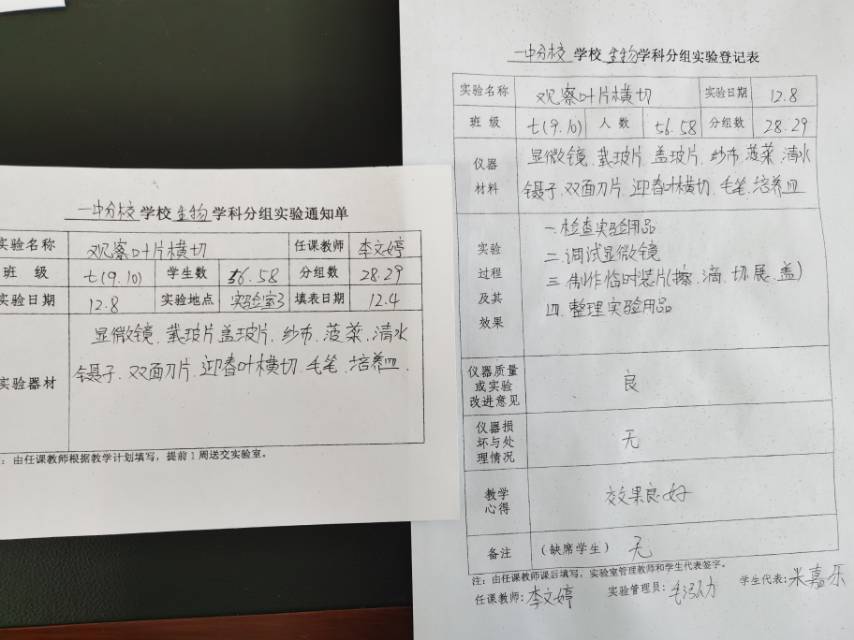 一中分校 学校 生物 学科分组实验通知单
实验名称 观察叶片横切 任课教师 李文婷
班 级 七(9.10) 学生数 56.58 分组数 28.29
实验日期 12.8 实验地点 实验室3 填表日期 12.4
实验器材
显微镜、载玻片盖玻片、纱布、菠菜、清水
镊子、双面刀片、迎春叶横切、毛笔、培养皿、
：由任课教师根据教学计划填写，提前1周送交实验室。
一中分校 学校 生物 学科分组实验登记表
实验名称 观察叶片横切 实验日期 12.8
班 级 七(9.10) 人 数 56.58 分组数 28.29
仪器
材料
显微镜、载玻片 盖玻片、纱布、菠菜、清水
镊子、双面刀片、迎春叶横切、毛笔、培养皿
实验
过程
及其
效果
一.检查实验用品
二.调试显微镜
三.制作临时装片(擦、滴、切、展、盖)
四.整理实验用品
仪器质量
或实验
改进意见
良
仪器损
坏与处
理情况
无
教学
心得
效果良好
备注 (缺席学生) 无
注：由任课教师课后填写，实验室管理教师和学生代表签字。
任课教师：李文婷 实验管理员： 学生代表：米嘉乐